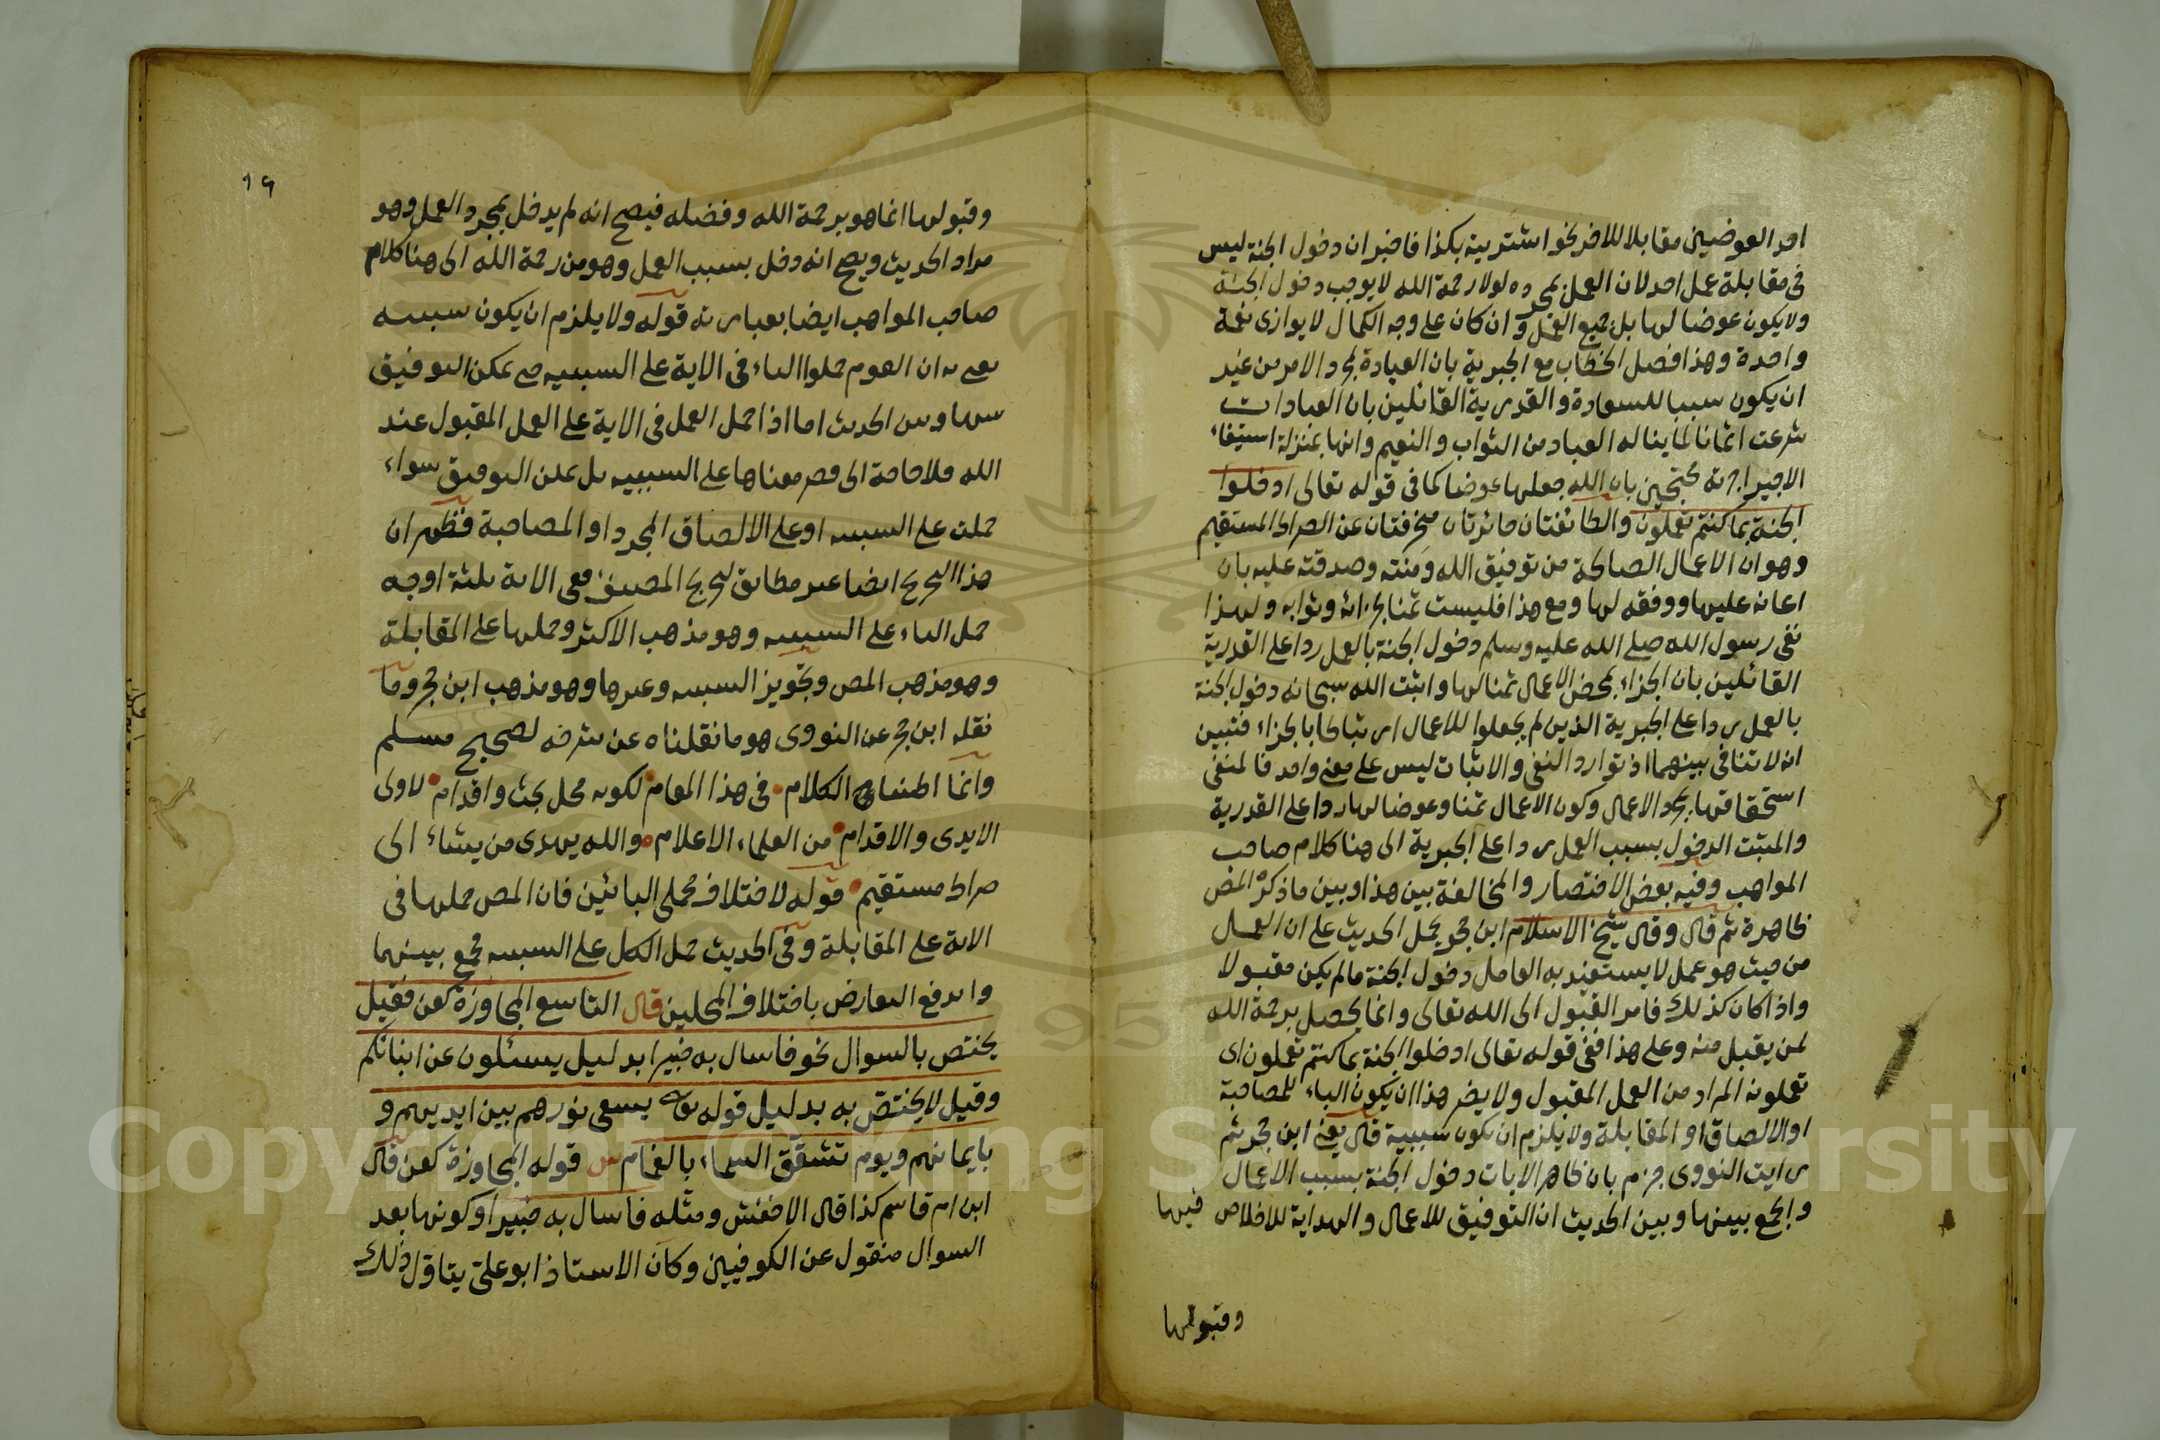 احد العوضين مقابلا للاخر نحو اشتريته بكذا فاخبر ان دخول الجنة ليس
في مقابلة عمل احد لان العمل بمجرده لولا رحمة الله لا يوجب دخول الجنة
ولا يكون عوضا لها بل جميع العمل و ان كان على وجه الكمال لا يوازى نعمة
واحدة وهذا فصل الخطاب مع الجبرية بان العبادة بمجرد الامر من غير
ان يكون سببا للسعادة والقدرية القائلين بان العبادات
شرعت اثمانا لما يناله العباد من الثواب والنعيم وانها بمنزلة استيفاء
الاجير اجرته محتجين بان الله جعلها عوضا كما في قوله تعالى ادخلوا
الجنة بما كنتم تعملون والطائفتان جائرتان منحرفتان عن الصراط المستقيم
وهو ان الاعمال الصالحة من توفيق الله ومنته وصدقته عليه بان
اعانه عليها ووفقه لها ومع هذا فليست ثمنا لجزائه وثوابه ولهذا
نفى رسول الله صلى الله عليه وسلم دخول الجنة بالعمل ردا على القدرية
القائلين بان الجزاء بمحض الاعمال ثمنا لها واثبت الله سبحانه دخول الجنة
بالعمل ردا على الجبرية الذين لم يجعلوا للاعمال ارتباطا بالجزاء فتبين
انه لا تنافى بينهما اذ توارد النفى والاثبات ليس على معنى واحد فالمنفى
استحقاقها بمجرد الاعمال وكون الاعمال ثمنا وعوضا لها ردا على القدرية
والمثبت الدخول بسبب العمل ردا على الجبرية الى هنا كلام صاحب
المواهب وفيه بعض الاختصار والمخالفة بين هذا وبين ما ذكره المص
ظاهرة ثم قال وقال شيخ الاسلام ابن حجر يحمل الحديث على ان العمل
من حيث هو عمل لا يستفيد به العامل دخول الجنة مالم يكن مقبولا
واذا كان كذلك فامر القبول الى الله تعالى وانما يحصل برحمة الله
لمن يقبل منه وعلى هذا فمعنى قوله تعالى ادخلوا الجنة بما كنتم تعملون اى
تعملونه المراد من العمل المقبول ولا يضر هذا ان يكون الباء للمصاحبة
او الالصاق او المقابلة ولا يلزم ان يكون سببية قال يعنى ابن حجر ثم
رايت النووى جزم بان ظاهر الايات دخول الجنة بسبب الاعمال
والجمع بينها وبين الحديث ان التوفيق للاعمال والهداية للاخلاص فيها
وقبولها
١٩
وقبولها انما هو برحمة الله وفضله فيصح انه لم يدخل بمجرد العمل وهو
مراد الحديث ويصح انه دخل بسبب العمل وهو من رحمة الله الى هنا كلام
صاحب المواهب ايضا بعبارته قوله ولا يلزم ان يكون سببيه
يعنى به ان القوم حملوا الباء في الاية على السببيه حتى يمكن التوفيق
بينها وبين الحديث اما اذا حمل العمل في الاية على العمل المقبول عند
الله فلا حاجة الى قصر معناها على السببيه بل يمكن التوفيق سواء
حملت على السببيه او على الالصاق المجرد او المصاحبة فظهر ان
هذا التخريج ايضا غير مطابق لتخريج المصنف ففي الاية ثلثة اوجه
حمل الباء على السببيه وهو مذهب الاكثر وحملها على المقابلة
وهو مذهب المص وتجويز السببيه وغيرها وهو مذهب ابن حجر وما
نقله ابن حجر عن النووى هو ما نقلناه عن شرحه لصحيح مسلم
وانما اطنبنا الكلام في هذا المقام لكونه محل بحث واقدام لاولى
الايدى والاقدام من العلماء الاعلام والله يهدى من يشاء الى
صراط مستقيم قوله لاختلاف محملى البائين فان المص حملها في
الاية على المقابلة وفي الحديث حمل الكل على السببيه فجمع بينهما
واندفع التعارض باختلاف المحملين قال التاسع المجاوزة كعن فقيل
يختص بالسوال نحو فاسال به خبيرا بدليل يسئلون عن انبائكم
وقيل لا يختص به بدليل قوله تع يسعى نورهم بين ايديهم و
بايمانهم ويوم تشقق السماء بالغمام ش قوله المجاوزة كعن قال
ابن ام قاسم كذا قال الاخفش ومثله فاسال به خبيرا وكونها بعد
السوال منقول عن الكوفيين وكان الاستاذ ابو على يتاول ذلك
Copyright © King Saud University